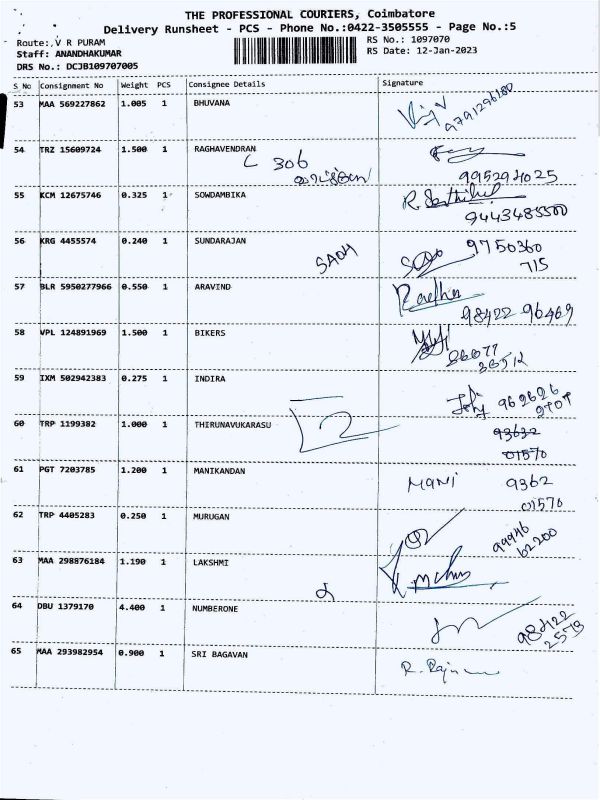 THE PROFESSIONAL COURIERS, Coimbatore
Delivery Runsheet - PCS - Phone No.:0422-3505555 - Page No.:5
Route: V R PURAM RS No.: 1097070
Staff: ANANDHAKUMAR RS Date: 12-Jan-2023
DRS No.: DCJB109707005
S No Consignment No Weight PCS Consignee Details Signature
53 MAA 569227862 1.005 1 BHUVANA
9791296200
54 TRZ 15609724 1.500 1 RAGHAVENDRAN
C 306
9952942025
55 KCM 12675746 0.325 1 SOWDAMBIKA R. Senthil
9443485500
56 KRG 4455574 0.240 1 SUNDARAJAN 9750360
715
57 BLR 5950277966 0.550 1 ARAVIND Radha
98422 96469
58 VPL 124891969 1.500 1 BIKERS
86677
36512
59 IXM 502942383 0.275 1 INDIRA
962626
2707
60 TRP 1199382 1.000 1 THIRUNAVUKARASU 2 93632
01570
61 PGT 7203785 1.200 1 MANIKANDAN MANI 9362
01570
62 TRP 4405283 0.250 1 MURUGAN 99946
62200
63 MAA 298876184 1.190 1 LAKSHMI
64 DBU 1379170 4.400 1 NUMBERONE 98422
2579
65 MAA 293982954 0.900 1 SRI BAGAVAN R. Raju